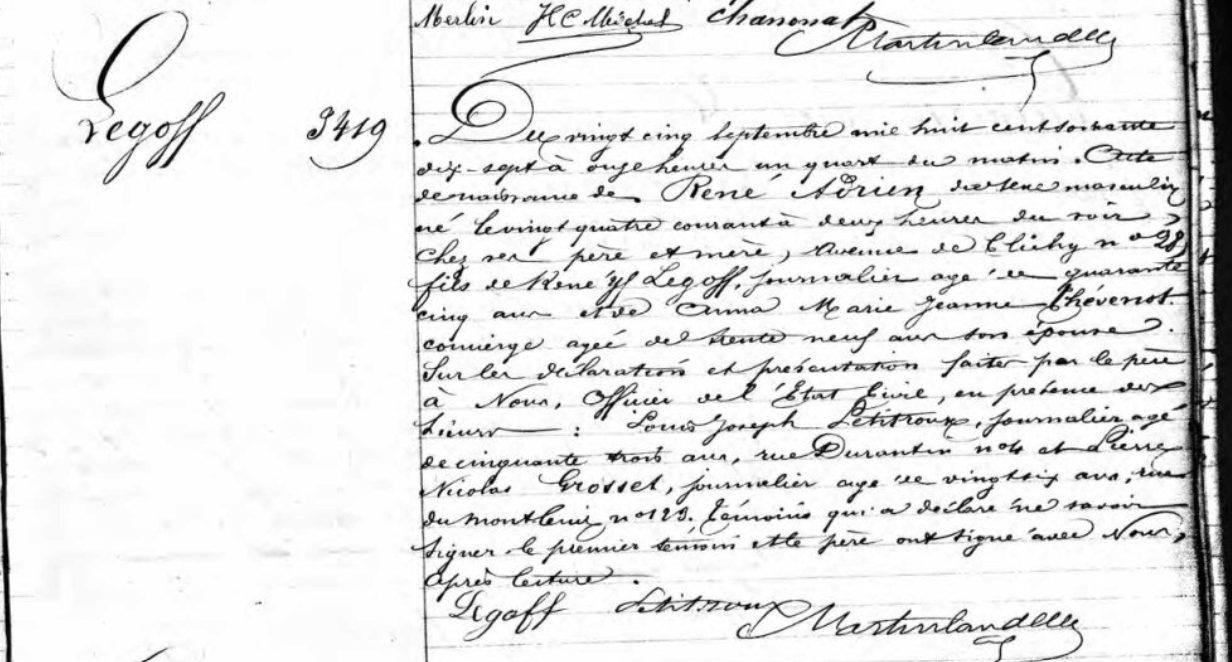 Merlin H C Michel Chanonat
Martinlandelle
Legoff 3419
Du vingt cinq Septembre mil huit cent soixante
dix-sept à onze heures un quart du matin. Acte
de naissance de René Adrien du sexe masculin
né le vingt quatre courant à deux heures du soir,
chez ses père et mère, avenue de Clichy no 28,
fils de René Legoff, journalier agé de quarante
cinq ans et de Anna Marie Jeanne Thévenot
concierge agée de trente neuf ans son épouse.
Sur les déclaration et présentation faites par le père
à Nous, Officier de l'Etat Civil, en présence des
Sieurs : Louis Joseph Petitroux, journalier agé
de cinquante trois ans, rue Durantin no et Pierre
Nicolas Grosset, journalier agé de vingt six ans, rue
du Montcenis, no 123. Témoins qui a déclaré ne savoir
signer le premier témoin et le père ont signé avec Nous,
après lecture.
Legoff Petitroux Martinlandelle